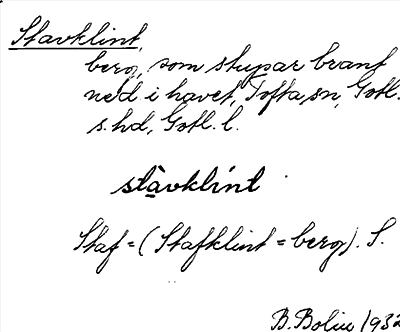 Stavklint,
berg, som stupar brant
ned i havet, Tofta sn, Gotl.
s. hd, Gotl. l.
stàvklínt
Staf = (Stafklint = berg). S.
B. Bolin 1932